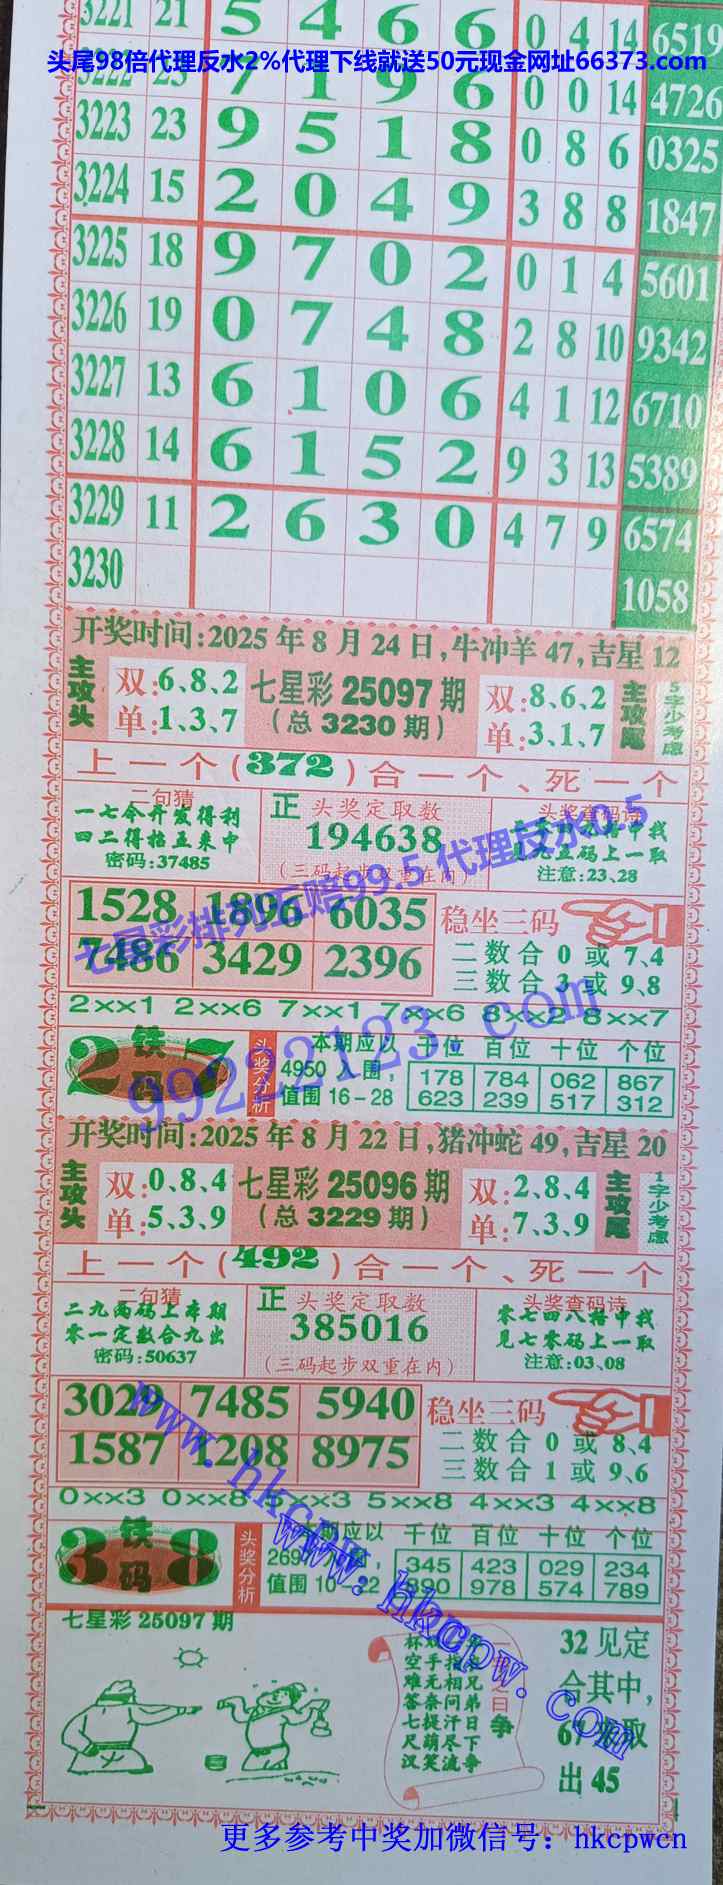 3221 21 5 4 6 6 0 4 14 6519
头尾98倍代理反水2%代理下线就送50元现金网址66373.com
3222 25 7 1 9 6 0 0 14 4726
3223 23 9 5 1 8 0 8 6 0325
3224 15 2 0 4 9 3 8 8 1847
3225 18 9 7 0 2 0 1 4 5601
3226 19 0 7 4 8 2 8 10 9342
3227 13 6 1 0 6 4 1 12 6710
3228 14 6 1 5 2 9 3 13 5389
3229 11 2 6 3 0 4 7 9 6574
3230 1058
开奖时间:2025年8月24日,牛冲羊47,吉星12
主攻头
双:6、8、2
单:1、3、7
七星彩25097期
(总3230期)
双:8、6、2
单:3、1、7
主攻尾
5字少考虑
上一个(372)合一个、死一个
二句猜
一七令升发得利
四二得拾五来中
密码:37485
正 头奖定取数
194638
(三码起步双重在内)
头奖查码诗
九五码上一取
注意:23、28
1528 1896 6035
7486 3429 2396
稳坐三码
二数合0或7、4
三数合3或9、8
七星彩排列五赔99.5代理反水0.5
2××1 2××6 7××1 7××6 8××2 8××7
2 铁码 7
头奖分析
本期应以
4950入围,
值围16-28
千位 百位 十位 个位
178 784 062 867
623 239 517 312
99222123.com
开奖时间:2025年8月22日,猪冲蛇49,吉星20
主攻头
双:0、8、4
单:5、3、9
七星彩25096期
(总3229期)
双:2、8、4
单:7、3、9
主攻尾
1字少考虑
上一个(492)合一个、死一个
二句猜
二九两码上本期
零一定数合九出
密码:50637
正 头奖定取数
385016
(三码起步双重在内)
头奖查码诗
零七四八将中找
见七零码上一取
注意:03、08
3029 7485 5940
1587 1208 8975
稳坐三码
二数合0或8、4
三数合1或9、6
www.hkcpw.com
0××3 0××8 5××3 5××8 4××3 4××8
3 铁码 8
头奖分析
本期应以
入围,
值围10-22
千位 百位 十位 个位
345 423 029 234
890 978 574 789
www.hkcpw.com
七星彩25097期
争
兄弟日下争
相问汗尽流
手无奈提葫笑
空难答七尺汉
32见定
合其中,
出45
更多参考中奖加微信号：hkcpwcn